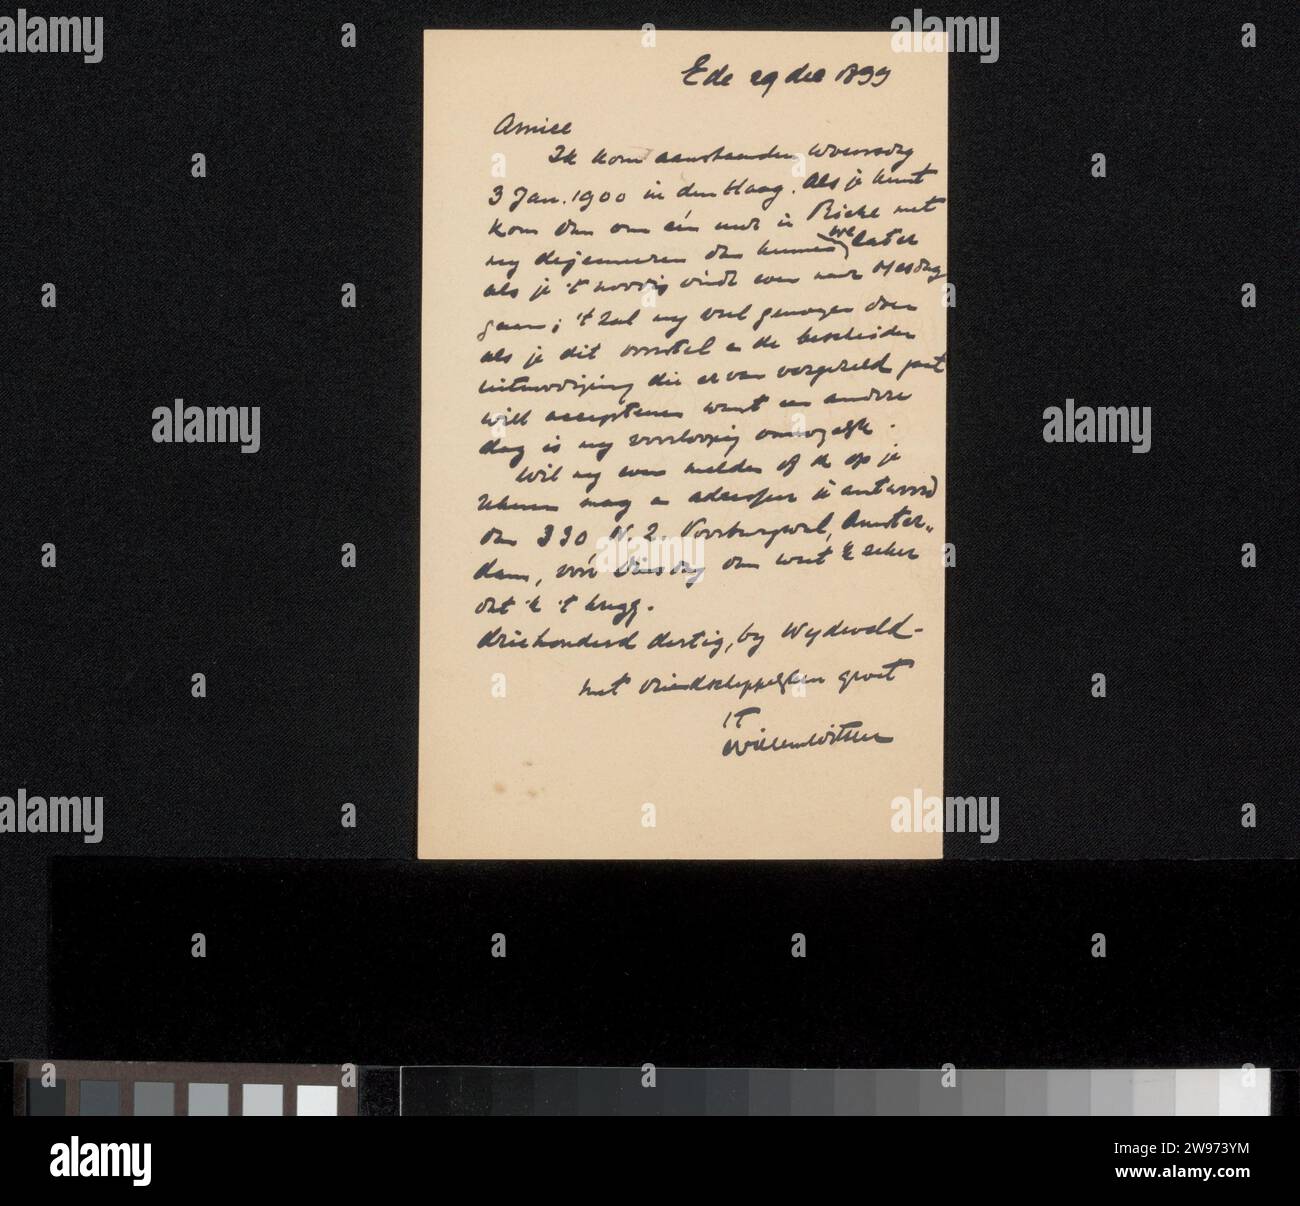 Ede 29 dec 1899
Amice
Ik kom aanstaanden woensdag
3 Jan. 1900 in den Haag. Als je kunt
kom dan om één uur in Riche met
my dejeuneeren dan kunnen we later
als je 't noodig vindt even naar Mesdag
gaan; 't zal my veel genoegen doen
als je dit voorstel en de bescheiden
uitnoodiging die ervan vergezeld gaat
wilt accepteeren want een andere
dag is my voorloopig onmogelyk.
Wil my even melden of ik op je
rekenen mag en adresseer je antwoord
dan 330 N. Z. Voorburgwal, Amster-
dam, vóór Dinsdag dan weet ik zeker
dat ik 't krygg.
driehonderd dertig, by Wydeveld-
met vriendschappelyken groet
tt
Willem Witsen
alamy
alamy
Image ID: 2W973YM
www.alamy.com